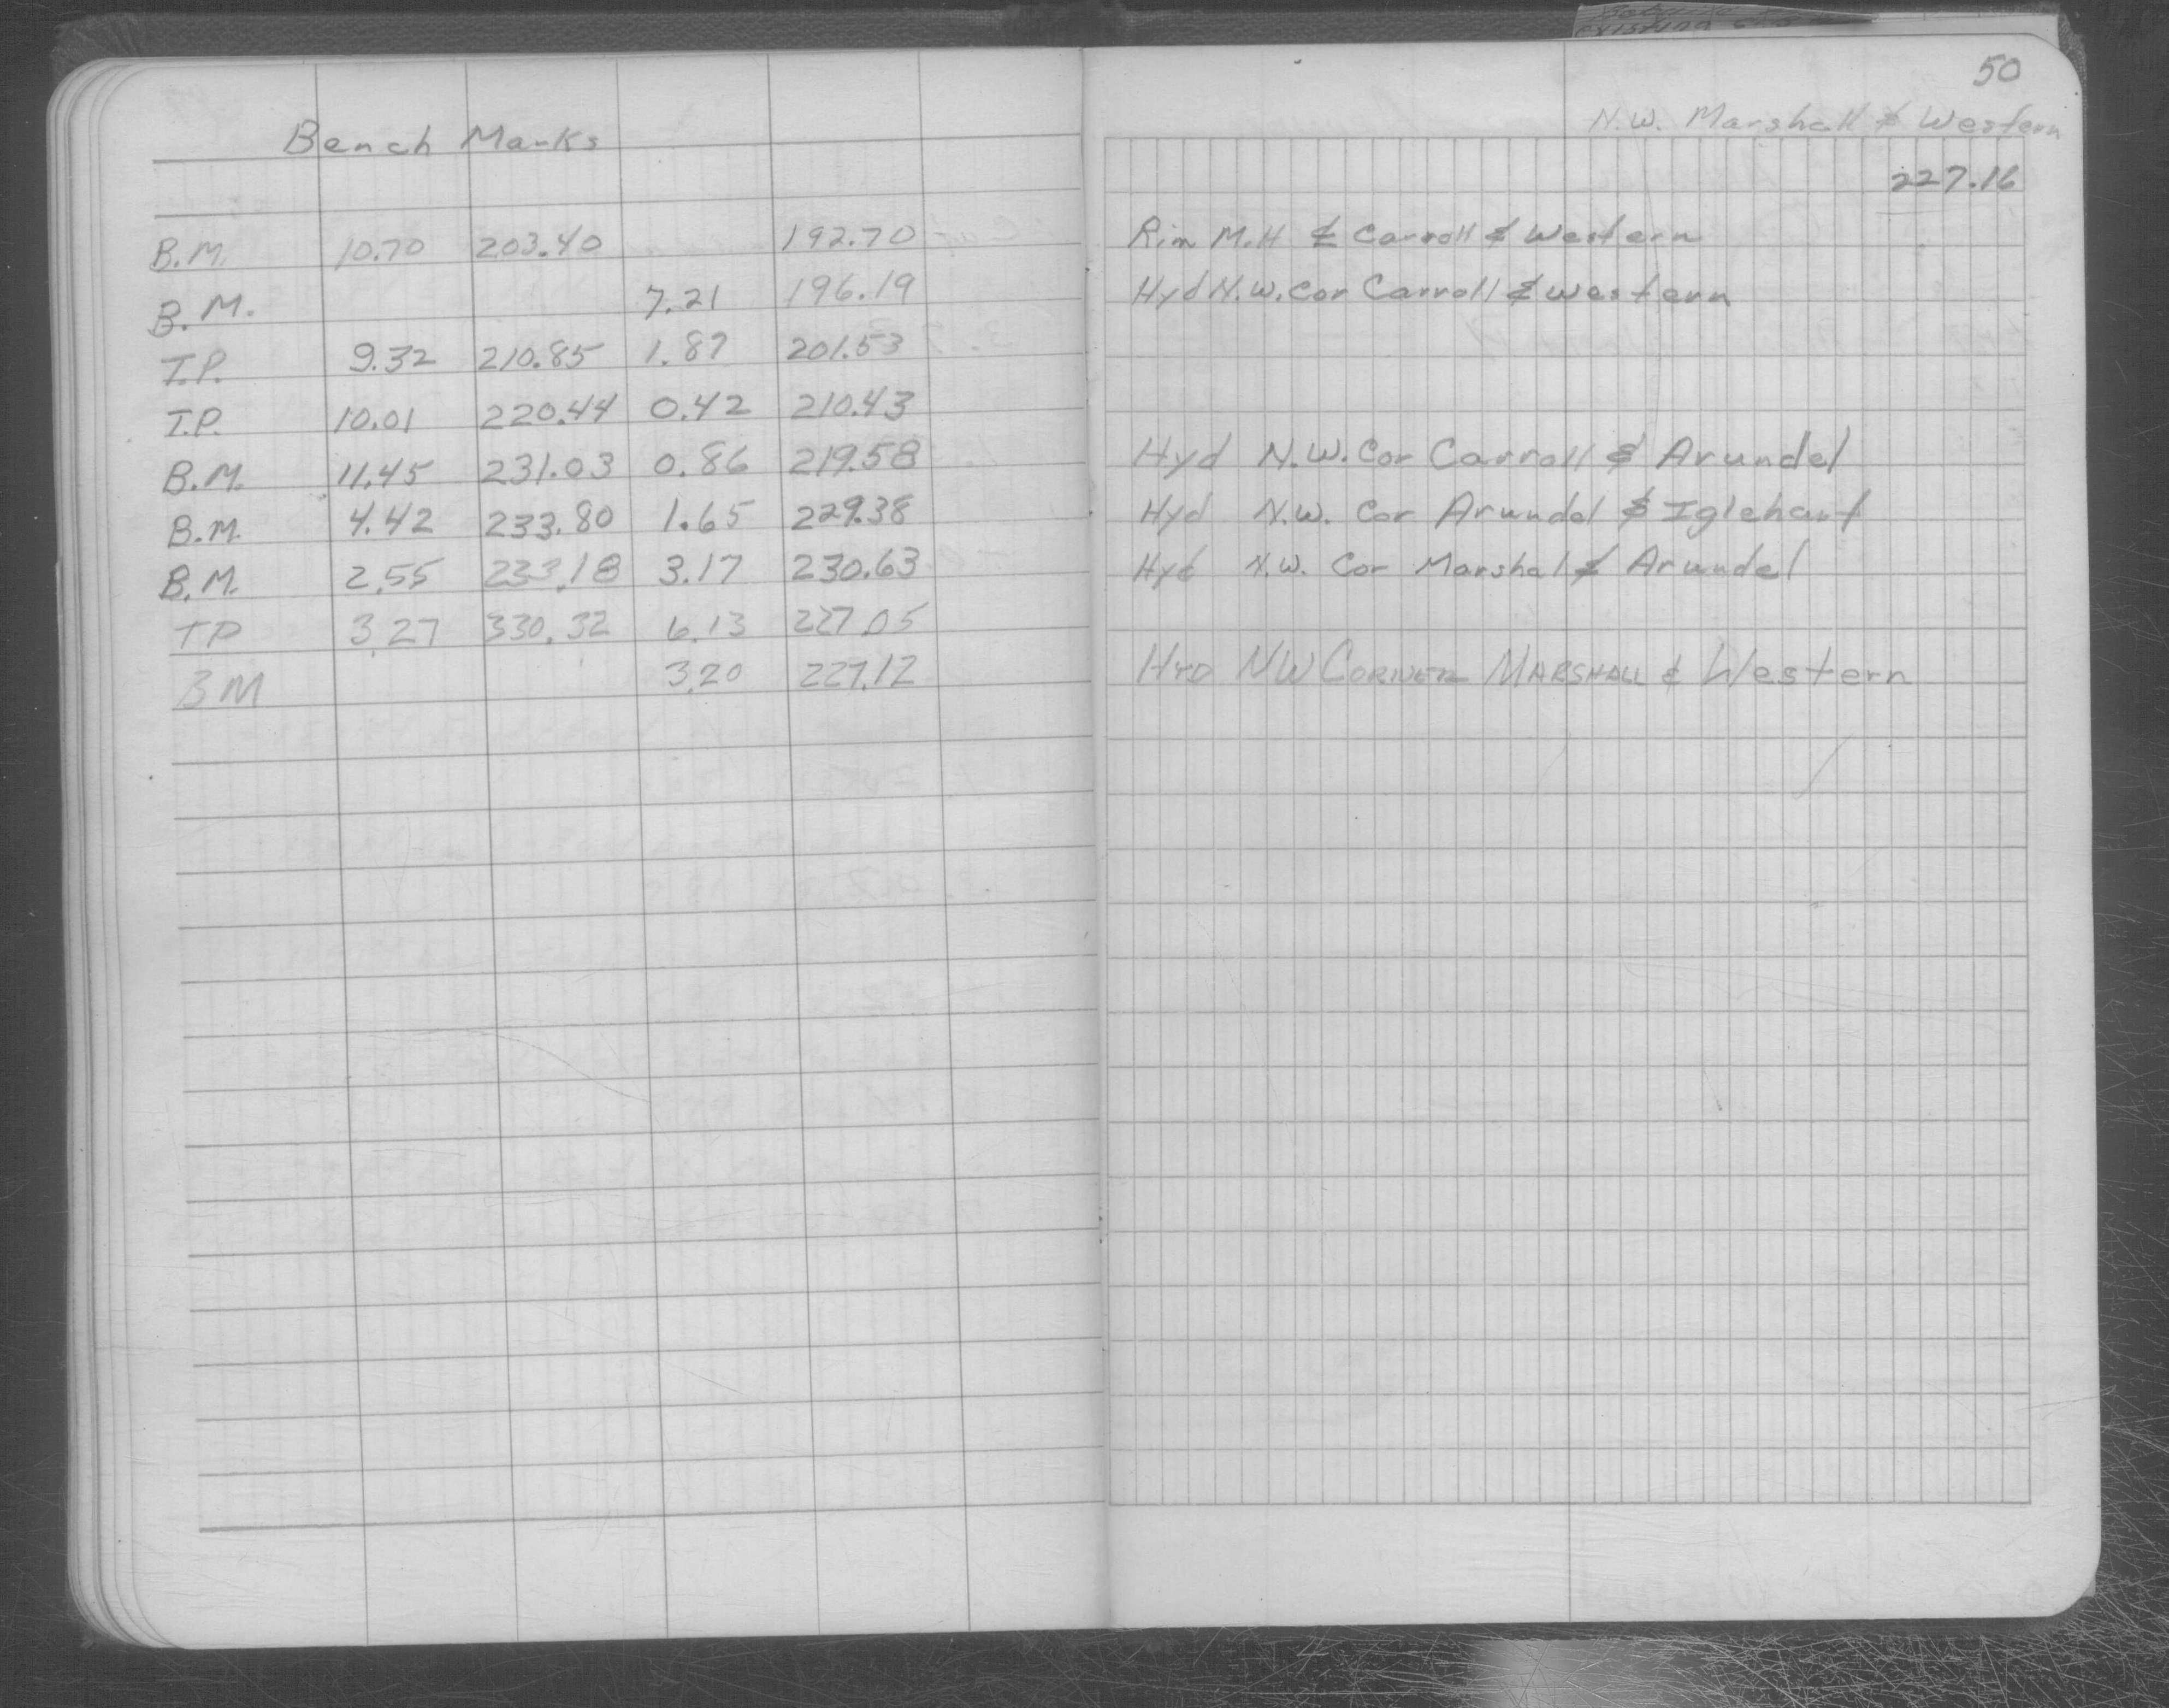 50
N.W. Marshall & Western
227.16
Bench Marks
B.M. 10.70 203.40 192.70 Rim M.H ₵ Carroll & Western
B.M. 7.21 196.19 Hyd N.W. Cor Carroll & Western
T.P. 9.32 210.85 1.87 201.53
T.P. 10.01 220.44 0.42 210.43
B.M. 11.45 231.03 0.86 219.58 Hyd N.W. Cor Carroll & Arundel
B.M. 4.42 233.80 1.65 229.38 Hyd N.W. Cor Arundel & Iglehart
B.M. 2.55 233.18 3.17 230.63 Hyd N.W. Cor Marshal & Arundel
TP 3.27 330.32 6.13 227.05
BM 3.20 227.12 HYD NW CORNER MARSHALL & Western